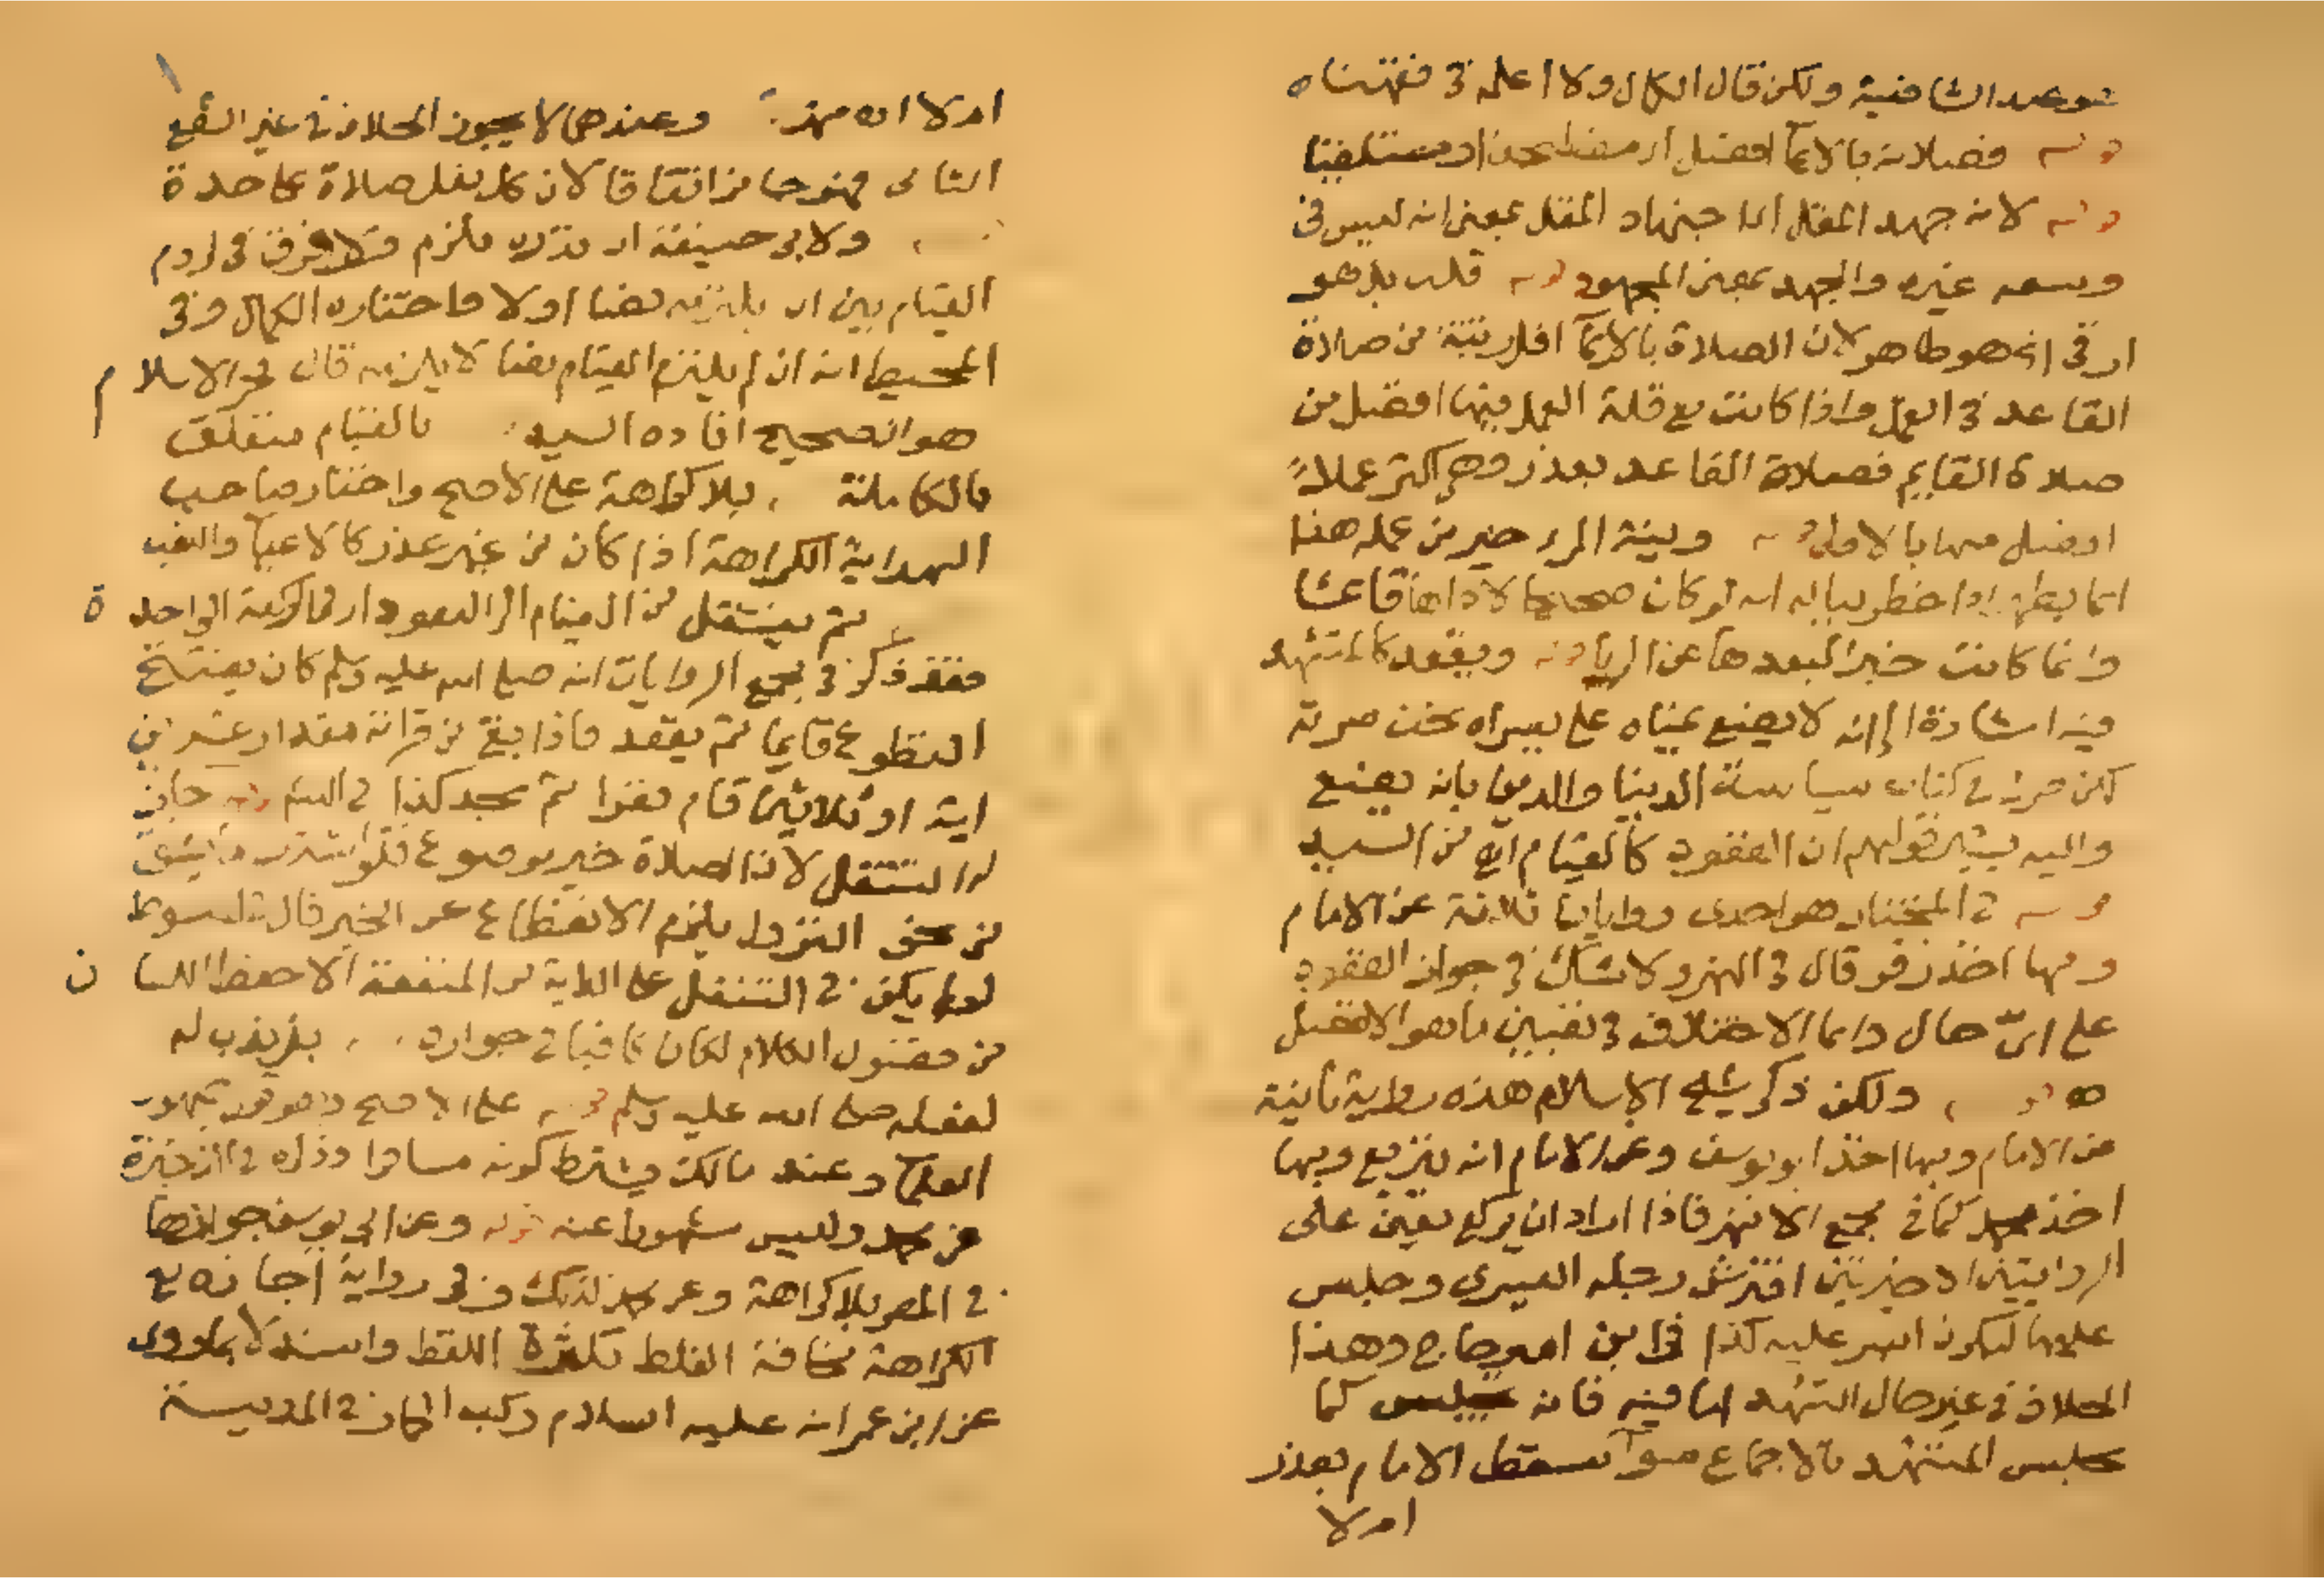 عند الشافعية ولكن قال الكمال ولا اعلمه في فقهنا ه
قوله فصلاته بالايما افضل او مضطجعا او مستلقيا
قوله لانه جهد المقل اي اجتهاد المقل بمعنى انه ليس في
وسعه غيره والجهد بمعنى المجهود قوله قلت بل هو
ارقى اي هو ما هو لان الصلاة بالايما اقل رتبة من صلاة
القاعد في العمل واذا كانت مع قلة العمل فيها افضل من
صلاة القايم فصلاة القاعد بعذر وهي اكثر عملا
افضل منها بالاولى قوله ونية المرء خير من عمله هذا
انما يظهر اذا خطر بباله انه لو كان صحيحا لاداها قايما
وانما كانت خيرا لبعدها عن الريا قوله ويقعد كالمتشهد
فيه اشارة الى انه لا يضع يمناه على يسراه تحت سرته
لكن صرح في كتاب سياسة الدنيا والدين بانه يضع
واليه يشير قولهم ان القعود كالقيام اي من السيد
قوله في المختار هو احدى روايات ثلاثة عن الامام
وبها اخذ زفر قال في النهر ولا شك في جواز القعود
على اي حال وانما الاختلاف في تعيين ما هو الافضل
ولكن ذكر شيخ الاسلام هذه رواية ثانية
عن الامام وبها اخذ ابو يوسف وعن الامام انه يتربع وبها
اخذ محمد كما في مجمع الانهر فاذا اراد ان يركع يعين على
الروايتين الاخيرتين افترش رجله اليسرى وجلس
عليها ليكون ايسر عليه كذا في ابن امير حاج وهذا
الخلاف في غير حال التشهد اما فيه فانه يجلس كما
يجلس المتشهد بالاجماع سوا سقط القيام بعذر
او لا
او لا وعندهما لا يجوز الخلاف في غير الشفع
الثاني من اتفاقا لان كل نفل صلاة على حدة
ولابي حنيفة ان نذره ملزم ولا فرق في لزوم
القيام بين ان يلتزمه نصا او لا واختاره الكمال وفي
المحيط انه ان لم يلتزم القيام نصا لا يلزمه قال فخر الاسلام
هو الصحيح افاده السيد بالقيام متعلق
بالكاملة بلا كراهة على الاصح واختار صاحب
الهداية الكراهة اذا كان من غير عذر كالاعيا والتعب
ثم ينتقل من القيام الى القعود او في الركعة الواحدة
فقد ذكر في مجمع الروايات انه صلى الله عليه وسلم كان يفتتح
التطوع قايما ثم يقعد فاذا بقي من قراته مقدار عشرين
اية او ثلاثين قام فقرا ثم سجد كذا في قوله جاز
له التنفل لان الصلاة خير موضوع فلو اشترط
من نحو النزول يلزم الانقطاع عن الخير قال في المبسوط
لو لم يكن في التنفل على الدابة من المنفعة الا حفظ اللسان
من فضول الكلام لكان كافيا في جوازه بل يندب له
لفعله صلى الله عليه وسلم قوله على الاصح وهو قول جمهور
العلما وعند مالك يشترط كونه مسافرا وذكره في الذخيرة
عن محمد وليس مشهورا عنه قوله وعن ابي يوسف جوازها
في المصر بلا كراهة وعن محمد كذلك وفي رواية اجازه مع
الكراهة مخافة الغلط لكثرة اللغط واستدلا بما روي
عن ابن عمر انه عليه السلام ركب الحمار في المدينة